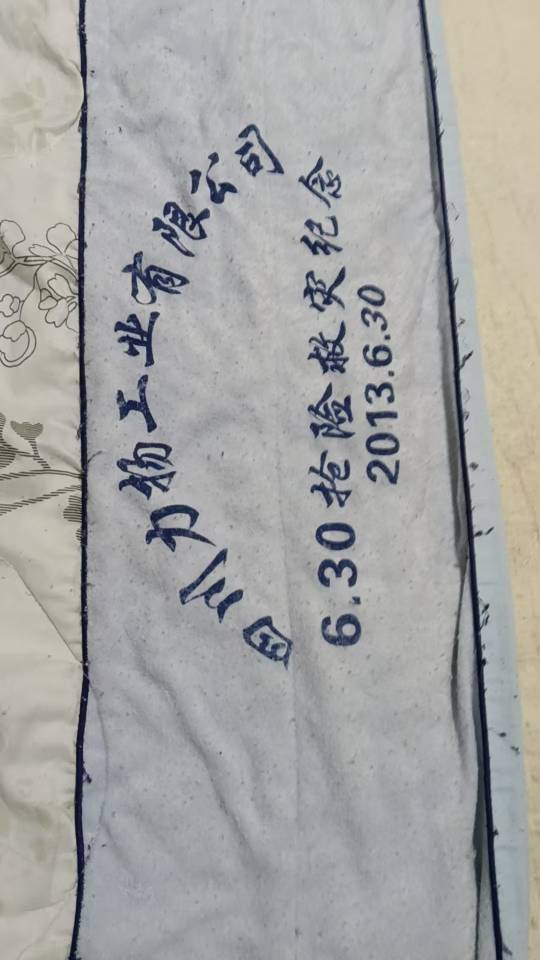 四川力物工业有限公司
6.30抢险救灾纪念
2013.6.30